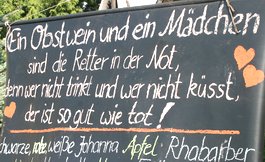 Ein Obstwein und ein Mädchen
sind die Retter in der Not,
denn wer nicht trinkt und wer nicht küsst,
der ist so gut wie tot!
schwarze, rote, weiße Johanna Apfel Rhabarber